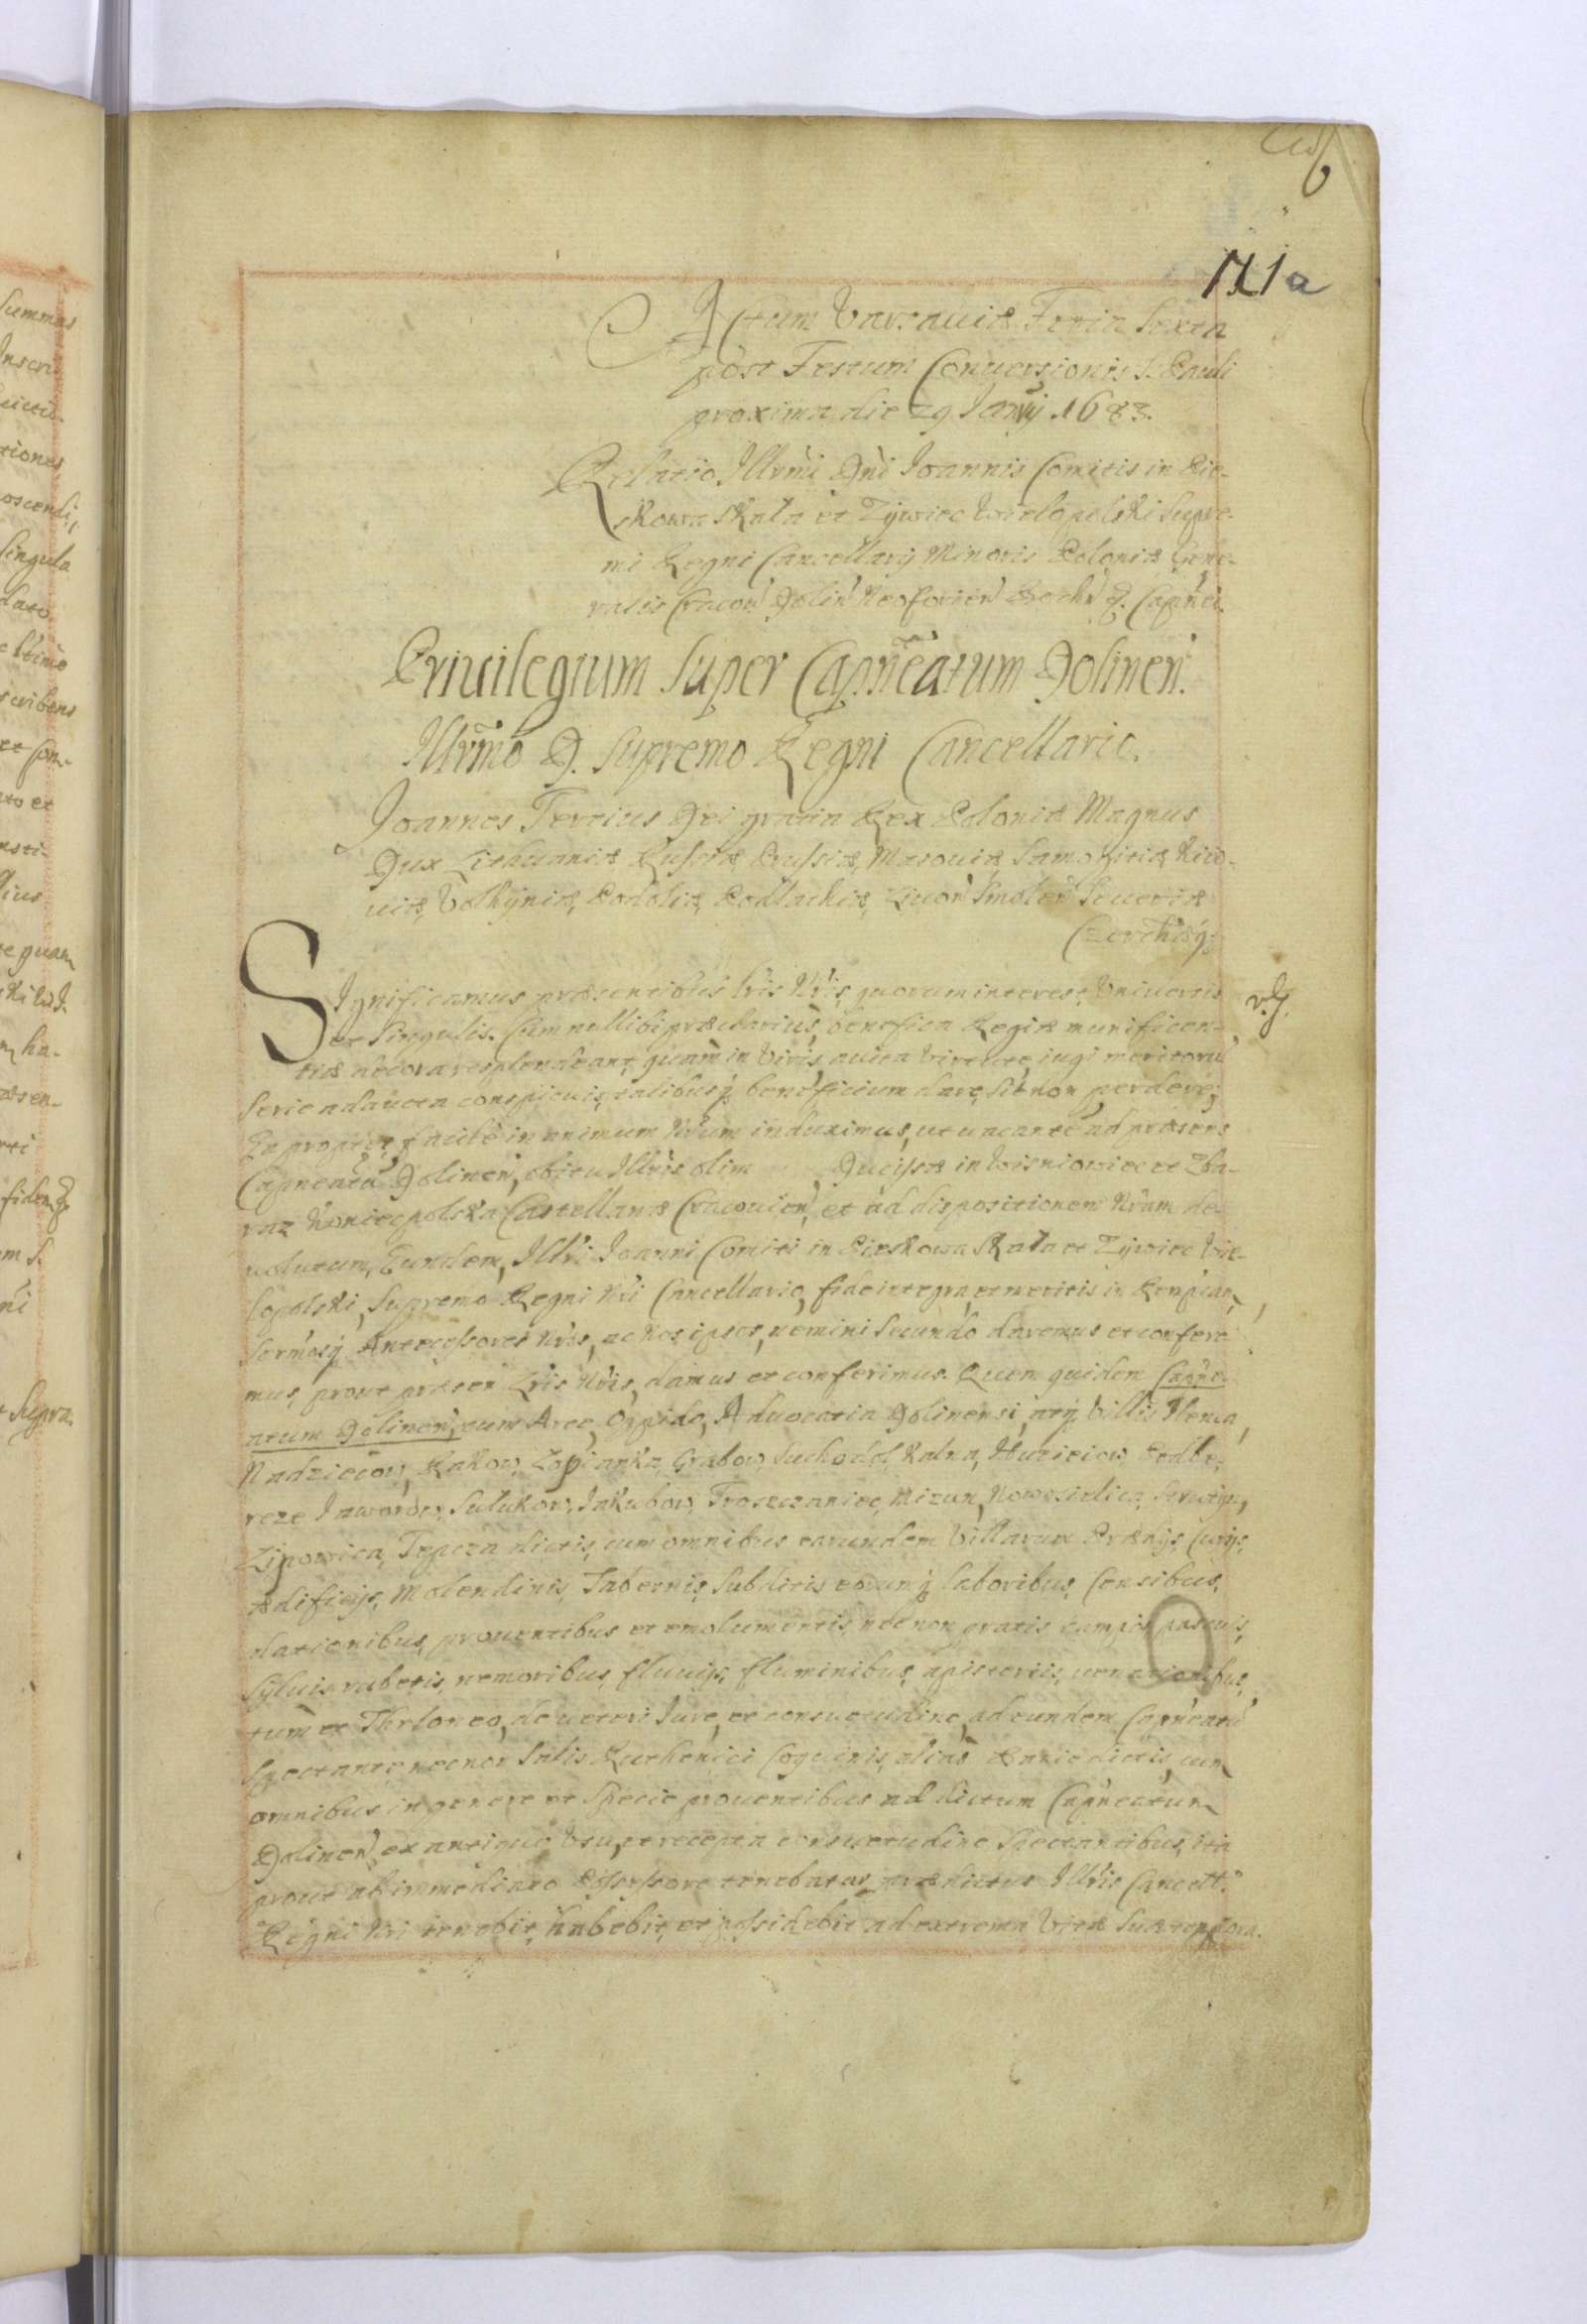 6
171a
Actum Varsauiæ Feria Sexta
post Festum Conuersionis S. Pauli
proxima die 29 Janry 1683.
Relatio Illrmi Dni Joannis Comitis in Pie-
skowa Skała et Zywiec Wielopolski Supre-
mi Regni Cancellarij Minoris Poloniæ Gene-
ralis Cracou Dolin Neoforien Bochn Capnei.
Priuilegium Super Capneatum Dolinen.
Illrmo D. Supremo Regni Cancellario.
Joannes Tertius Dei gratia Rex Poloniæ Magnus
Dux Lithuaniæ Russiæ Prussiæ, Masouiæ, Samogitiæ Kiio-
uiæ, Volhyniæ, Podoliæ, Podlachiæ, Liuon Smolen Seueriæ
Czerchiæq;
Significamus præsentibus Lris Nris, quorum interest, Vniuersis
et Singulis. Cum nullibi præclarius, benefica Regiæ munificen-
tiæ decora resplendeant, quam in Viris, auita Virtute, iugi meritoru
Serie adaucta conspicuis, talibusq beneficium dare, sit non perdere;
Ea propter, facile in animum Nrum induximus, ut uacante ad præsens
Capneatu Dolinen, obitu Illris olim Ducissæ in Wisniowiec et Zba-
raz Koniecpolska Castellanæ Cracouien, et ad dispositionem Nram de-
uolutum, Eundem, Illri Joanni Comiti in Pieskowa Skała et Zywiec Wie-
lopolski, Supremo Regni Nri Cancellario, fide integra, et meritis in Rempcam,
Sermosq Antecessores Nros, ac Nos ipsos, nemini Secundo daremus et confere-
mus, prout præsen Lris Nris, damus et conferimus. Quem quidem Capne-
atum Dolinen, cum Arce, Oppido, Aduocatia Dolinensi, atq Villis Hemia,
Nadzieiow, Rakow, Łopianka, Grabow, Suchodol, Kalna, Huziciow, Podbe-
reze Jaworow, Sulukow, Jakubow, Troszczaniec, Mizun, Nowosielica, Seneczyn,
Lipowica, Tepcza dictis, cum omnibus earundem Villarum Prædijs, Curijs,
Ædificijs, Molendinis, Tabernis, Subditis eorumq laboribus, Censibus,
dationibus, prouentibus et emolumentis, nec non pratis campis pascuis,
Syluis rubetis, nemoribus, fluuijs, fluminibus, apisteriis, uenationibus,
tum et Theloneo, de ueteri Jure, et consuetudine, ad eundem Capneatu
Spectante nec non Salis Ruthenici Coquinis, alias Banie dictis, cum
omnibus in genere et Specie prouentibus ad dictum Capneatum
Dolinen, ex antiquo Vsu, et recepta consuetudine Spectantibus, ita
prout ab immediato Possessore tenebatur, prædictus Illris Cancell.
Regni Nri tenebit, habebit, et possidebit ad extrema Vitæ Suæ tempora.